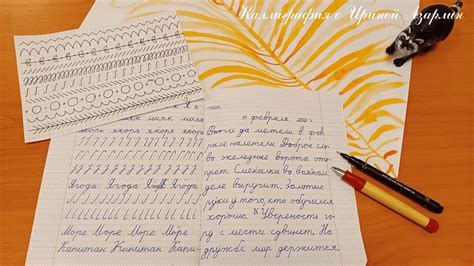 Каллиграфия с Ириной Азарлин
маяк маяк маяк
якорь якоря якоря якоря
Ягода Ягода Ягода
Море Море Море Море
Капитан Капитан Капи
11 февраля
да метели в фев
рале налетели. Доброе сло
во железные ворота отво
ряет. Смекалка во всяком
деле выручит. Золотые
руки у того, кто обучился
хорошо. Уверенность го
ру с места сдвинет. На
дружбе мир держится.